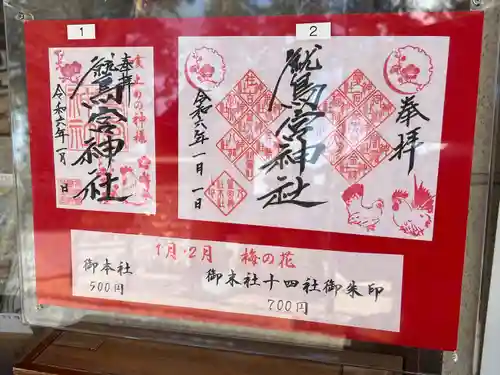 1
奉拝
幸せの神様
鷲宮神社
令和六年一月 日
2
奉拝
鷲宮神社
令和六年一月一日
1月・2月 梅の花
御本社
500円
御末社十四社御朱印
700円